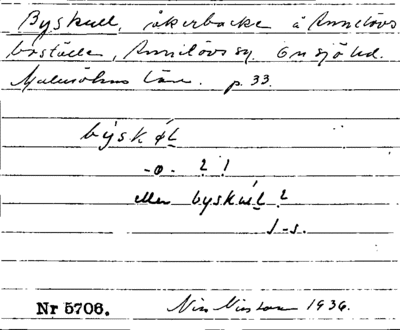 Byskull, åkerbacke å Annelövs
boställe, Annelövs sn. Onsjö hd.
Malmöhus län. p. 33.
býskɵL
-o- ? !
eller byskúL ?
J-s.
Nr 5706. Nils Nilsson 1936.